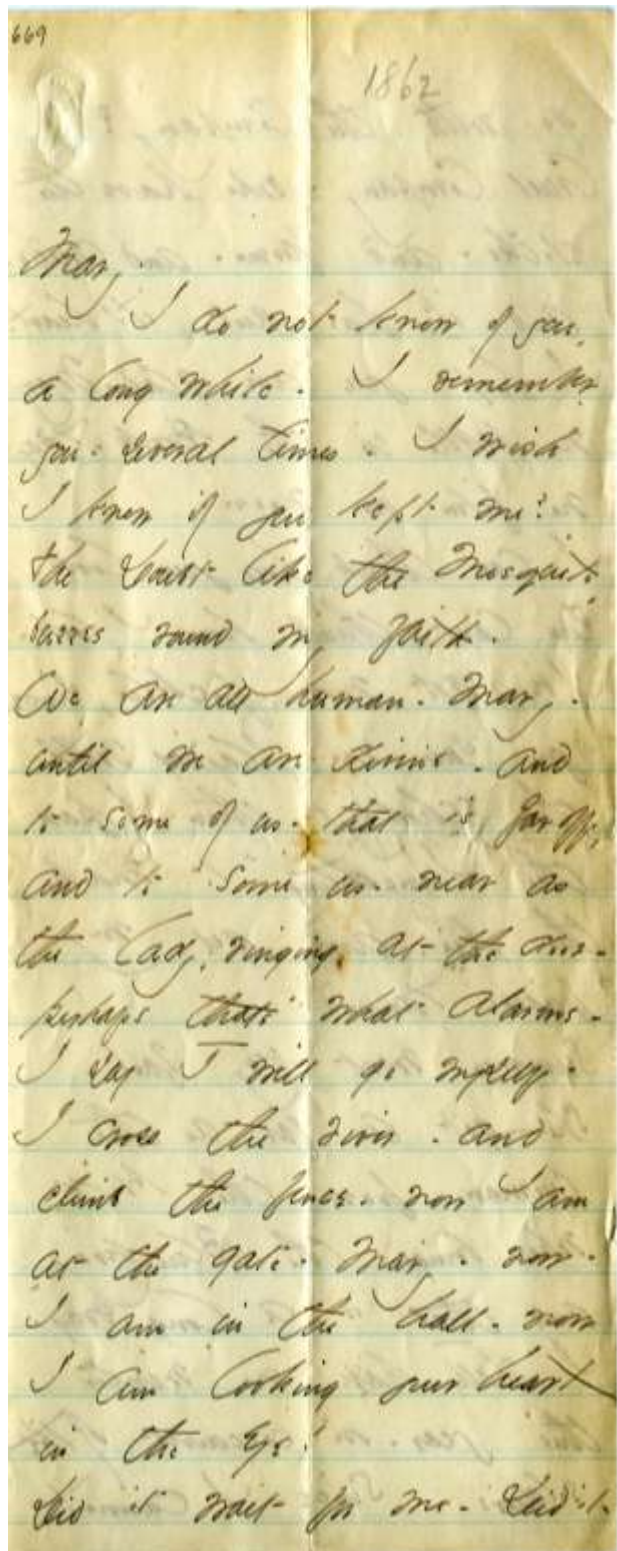 669
1862
Mary,
I do not know of you,
a long while - I remember
you - several times - I wish
I knew if you kept me?
The Doubt, like the Mosquito,
buzzes round my faith.
We are all human - Mary -
until we are divine - and
to some of us - that is far off,
and to some as near as
the lady, ringing, at the door -
perhaps that's what alarms -
I say I will go myself -
I cross the river - and
climb the fence - now I am
at the gate - Mary - now -
I am in the hall - now
I am looking your heart
in the Eye!
Did it wait for me - Did it